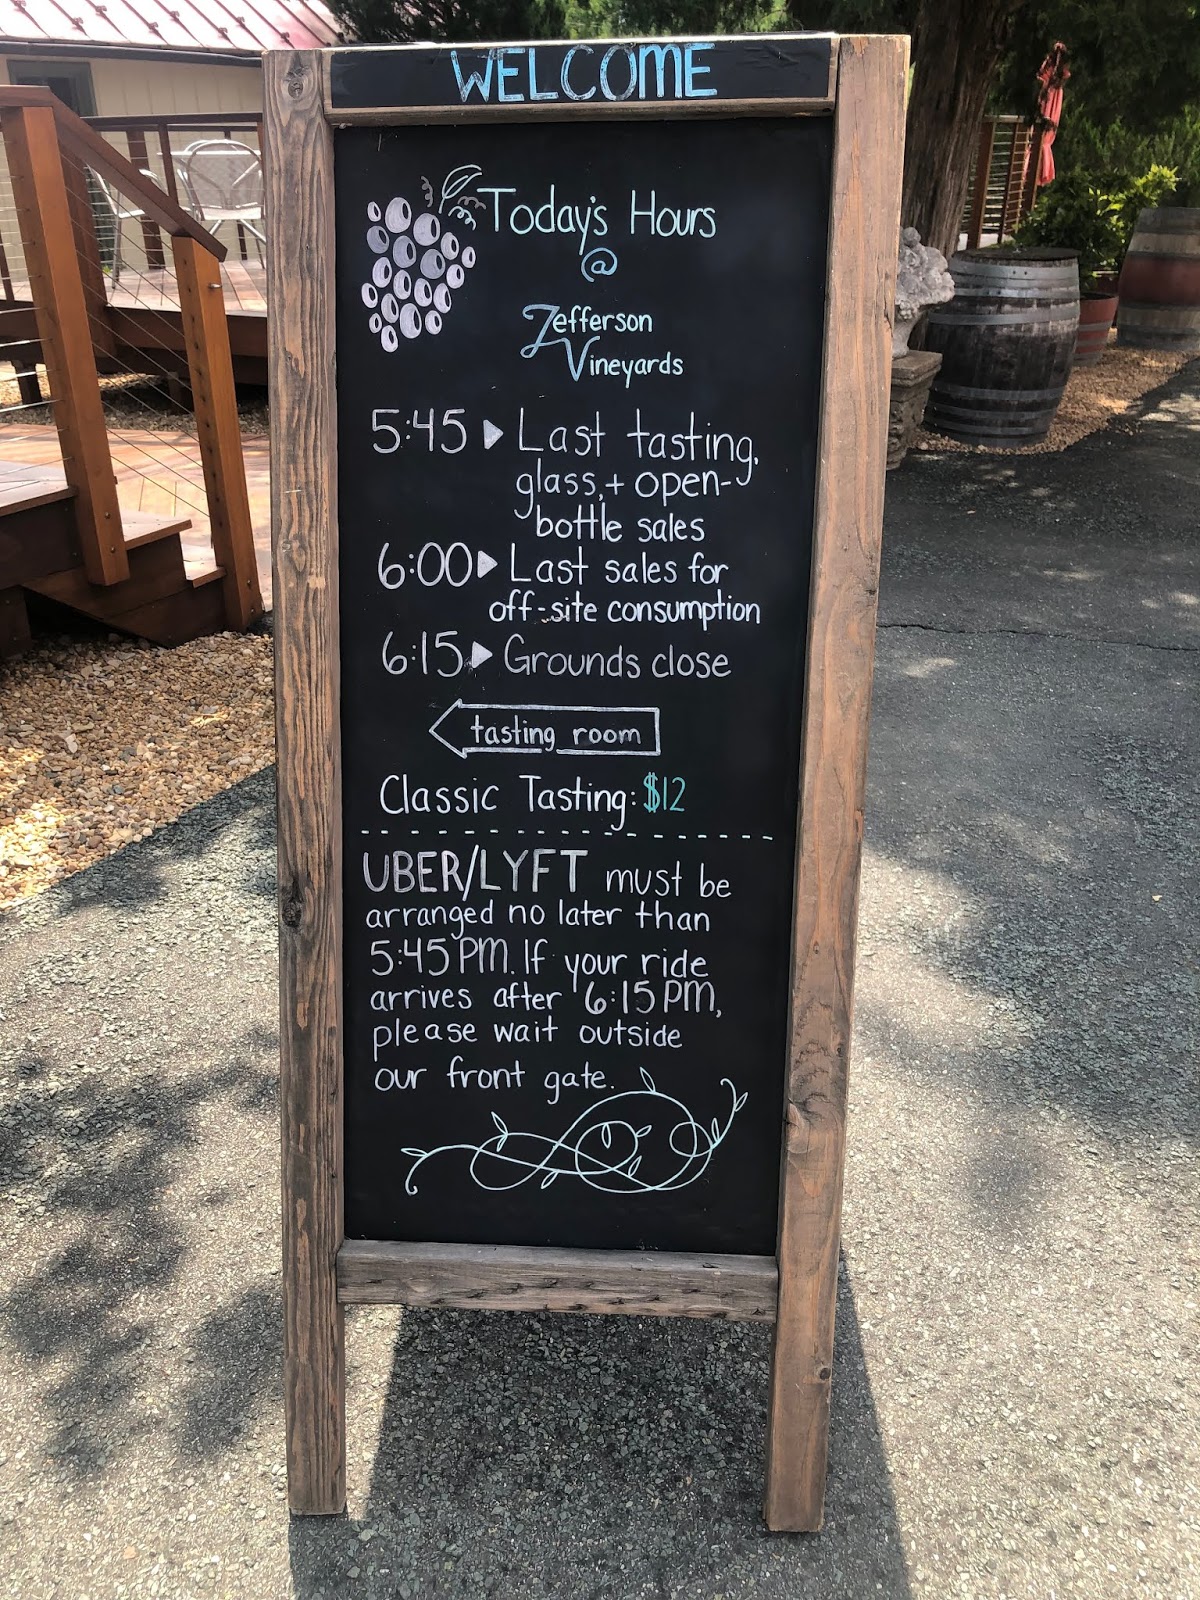 WELCOME
Today's Hours
@
Jefferson
Vineyards
5:45 ▶ Last tasting,
glass, + open-
bottle sales
6:00 ▶ Last sales for
off-site consumption
6:15 ▶ Grounds close
tasting room
Classic Tasting: $12
UBER/LYFT must be
arranged no later than
5:45 PM. If your ride
arrives after 6:15 PM,
please wait outside
our front gate.